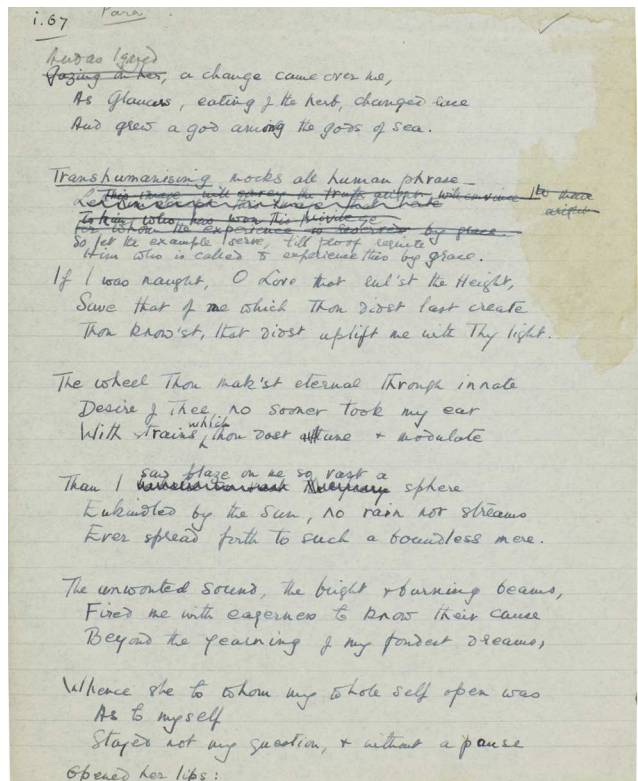 i.67 Para
And as I gazed
Gazing on her, a change came over me,
As Glaucus, eating of the herb, changed once
And grew a god among the gods of sea.
Transhumanising mocks all human phrase
This image will convey the truth aright
to him who has won this privilege
for whom the experience is reserved by grace.
So let the example serve, till proof requite
Him who is called to experience this by grace.
If I was naught, O Love that rul'st the Height,
Save that of me which Thou didst last create
Thou know'st, that didst uplift me with Thy light.
The wheel Thou mak'st eternal through innate
Desire of Thee, no sooner took my ear
With strains which Thou dost attune + modulate
saw blaze on me so vast a
Than I sphere
Enkindled by the Sun, no rain nor streams
Ever spread forth to such a boundless mere.
The unwonted sound, the bright + burning beams,
Fired me with eagerness to know their cause
Beyond the yearning of my fondest dreams;
Whence she to whom my whole self open was
As to myself
Stayed not my question, + without a pause
Opened her lips: